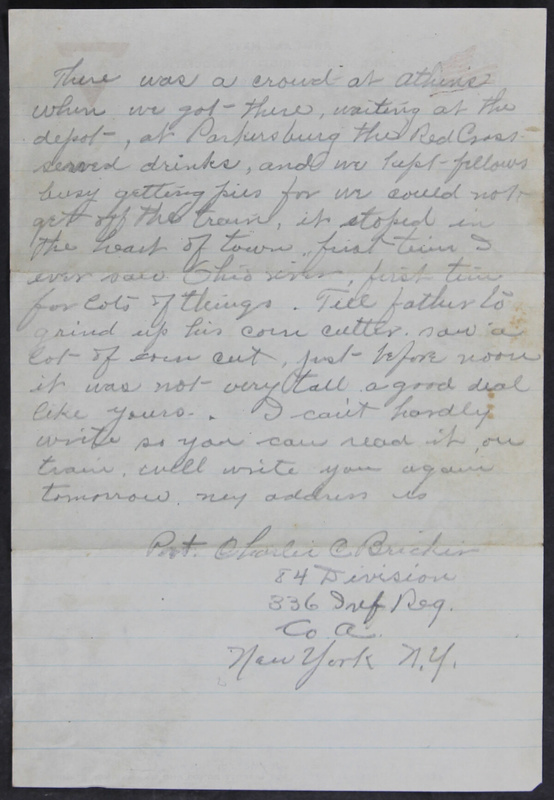 There was a crowd at Athens
when we got there, waiting at the
depot, at Parkersburg the Red Cross
served drinks, and we kept fellows
busy getting pies for we could not
get off the train, it stoped in
the heart of town, first time I
ever saw Ohio river, first time
for lots of things. Tell father to
grind up his corn cutter. saw a
lot of corn cut, just before noon
it was not very tall a good deal
like yours. I can't hardly
write so you can read it on
train, will write you again
tomorrow. my address is
Pvt. Charlie C.
84 Division
336 Inf Reg.
Co A.
New York N.Y.